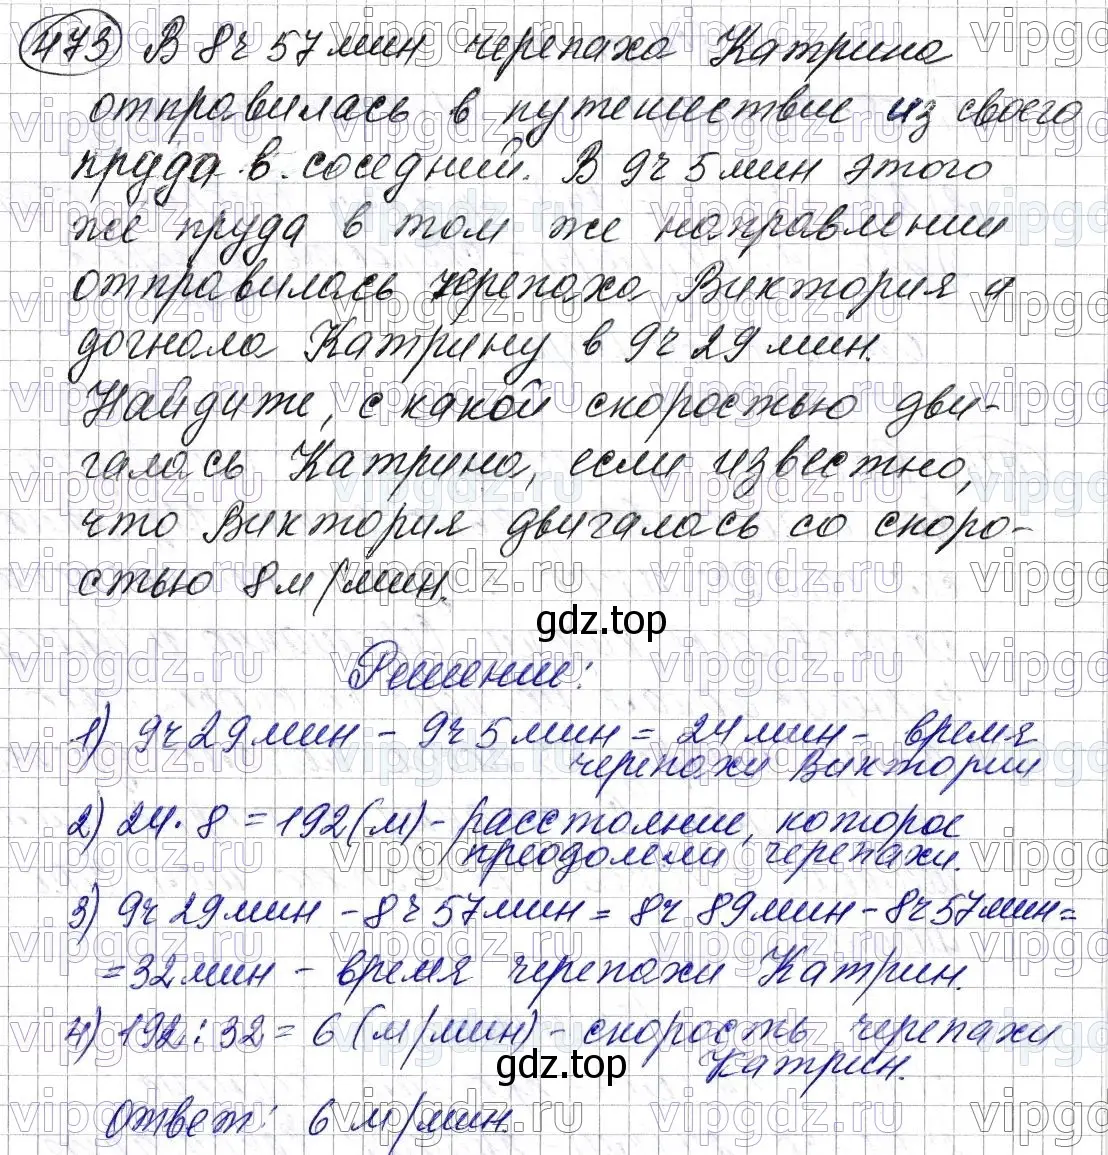 473 В 8ч 57мин черепаха Катрина
отправилась в путешествие из своего
пруда в соседний. В 9ч 5мин этого
же пруда в том же направлении
отправилась черепаха Виктория и
догнала Катрину в 9ч 29мин.
Найдите, с какой скоростью дви-
галась Катрина, если известно,
что Виктория двигалась со скоро-
стью 8м/мин.
gdz.top
Решение:
1) 9ч 29мин - 9ч 5мин = 24мин - время
черепахи Виктории
2) 24 · 8 = 192(м) - расстояние, которое
преодолели черепахи.
3) 9ч 29мин - 8ч 57мин = 8ч 89мин - 8ч 57мин =
= 32мин - время черепахи Катрин.
4) 192 : 32 = 6 (м/мин) - скорость черепахи
Катрин.
gdz.top
Ответ: 6 м/мин.